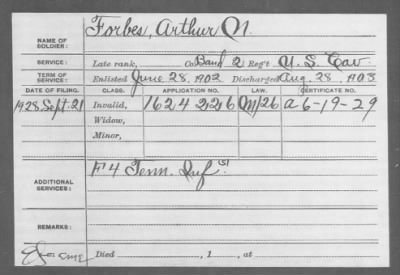 NAME OF SOLDIER: Forbes, Arthur N.
SERVICE: Late rank, Co. Band 2 Reg't U. S. Cav
TERM OF SERVICE: Enlisted June 28, 1902 Discharged Aug. 28, 1903
DATE OF FILING. CLASS. APPLICATION NO. LAW. CERTIFICATE NO.
1928 Sept-21 Invalid, 1624226 M/26 a 6-19-29
Widow,
Minor,
ADDITIONAL SERVICES: F 4 Tenn. Inf
REMARKS:
Died , 1 , at